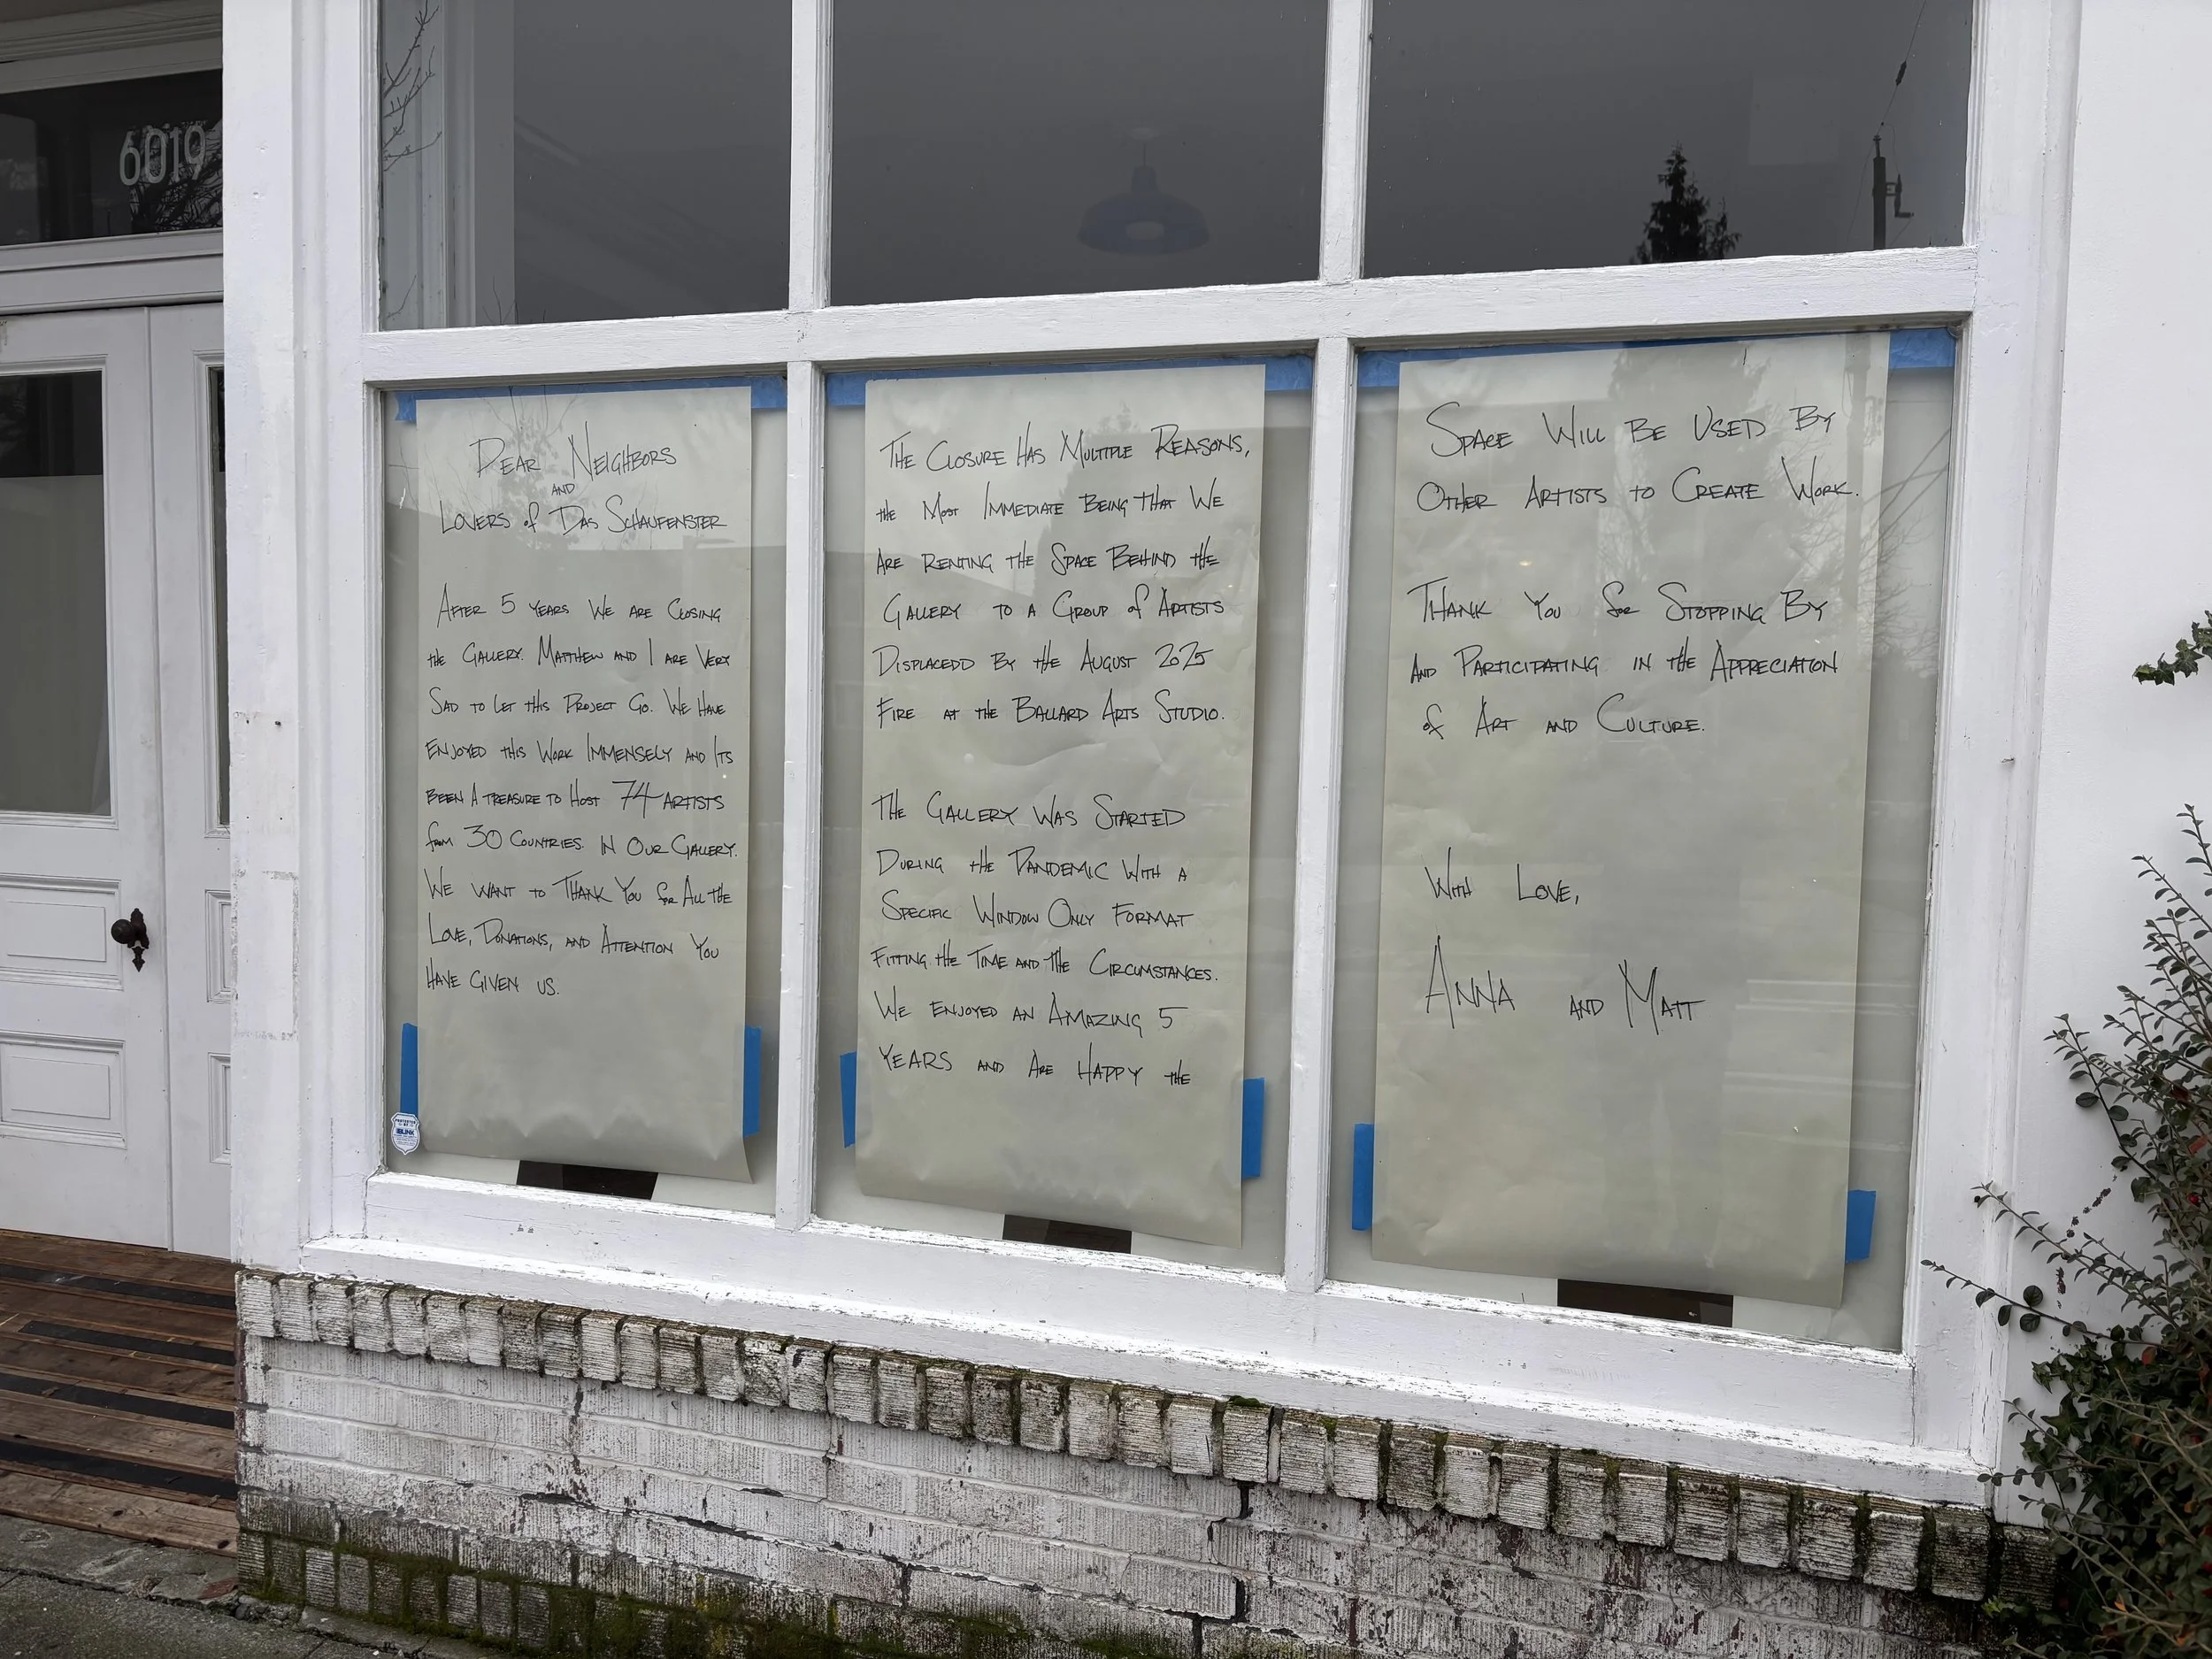 6019
DEAR NEIGHBORS
AND
LOVERS of DAS SCHAUFENSTER
AFTER 5 YEARS WE ARE CLOSING
the GALLERY. MATTHEW AND I ARE VERY
SAD TO LET THIS PROJECT GO. WE HAVE
ENJOYED THIS WORK IMMENSELY AND ITS
BEEN A TREASURE TO HOST 74 ARTISTS
from 30 COUNTRIES. IN OUR GALLERY.
WE WANT TO THANK YOU for ALL THE
LOVE, DONATIONS, AND ATTENTION YOU
HAVE GIVEN US.
PROTECTED
BY
BLINK
THE CLOSURE HAS MULTIPLE REASONS,
the MOST IMMEDIATE BEING THAT WE
ARE RENTING THE SPACE BEHIND THE
GALLERY TO A GROUP of ARTISTS
DISPLACEDD BY the AUGUST 2025
FIRE AT THE BALLARD ARTS STUDIO.
THE GALLERY WAS STARTED
DURING the PANDEMIC WITH A
SPECIFIC WINDOW ONLY FORMAT
FITTING the TIME AND THE CIRCUMSTANCES.
WE ENJOYED AN AMAZING 5
YEARS AND ARE HAPPY THE
SPACE WILL BE USED BY
OTHER ARTISTS TO CREATE WORK.
THANK YOU for STOPPING BY
AND PARTICIPATING IN the APPRECIATION
of ART AND CULTURE.
WITH LOVE,
ANNA AND MATT